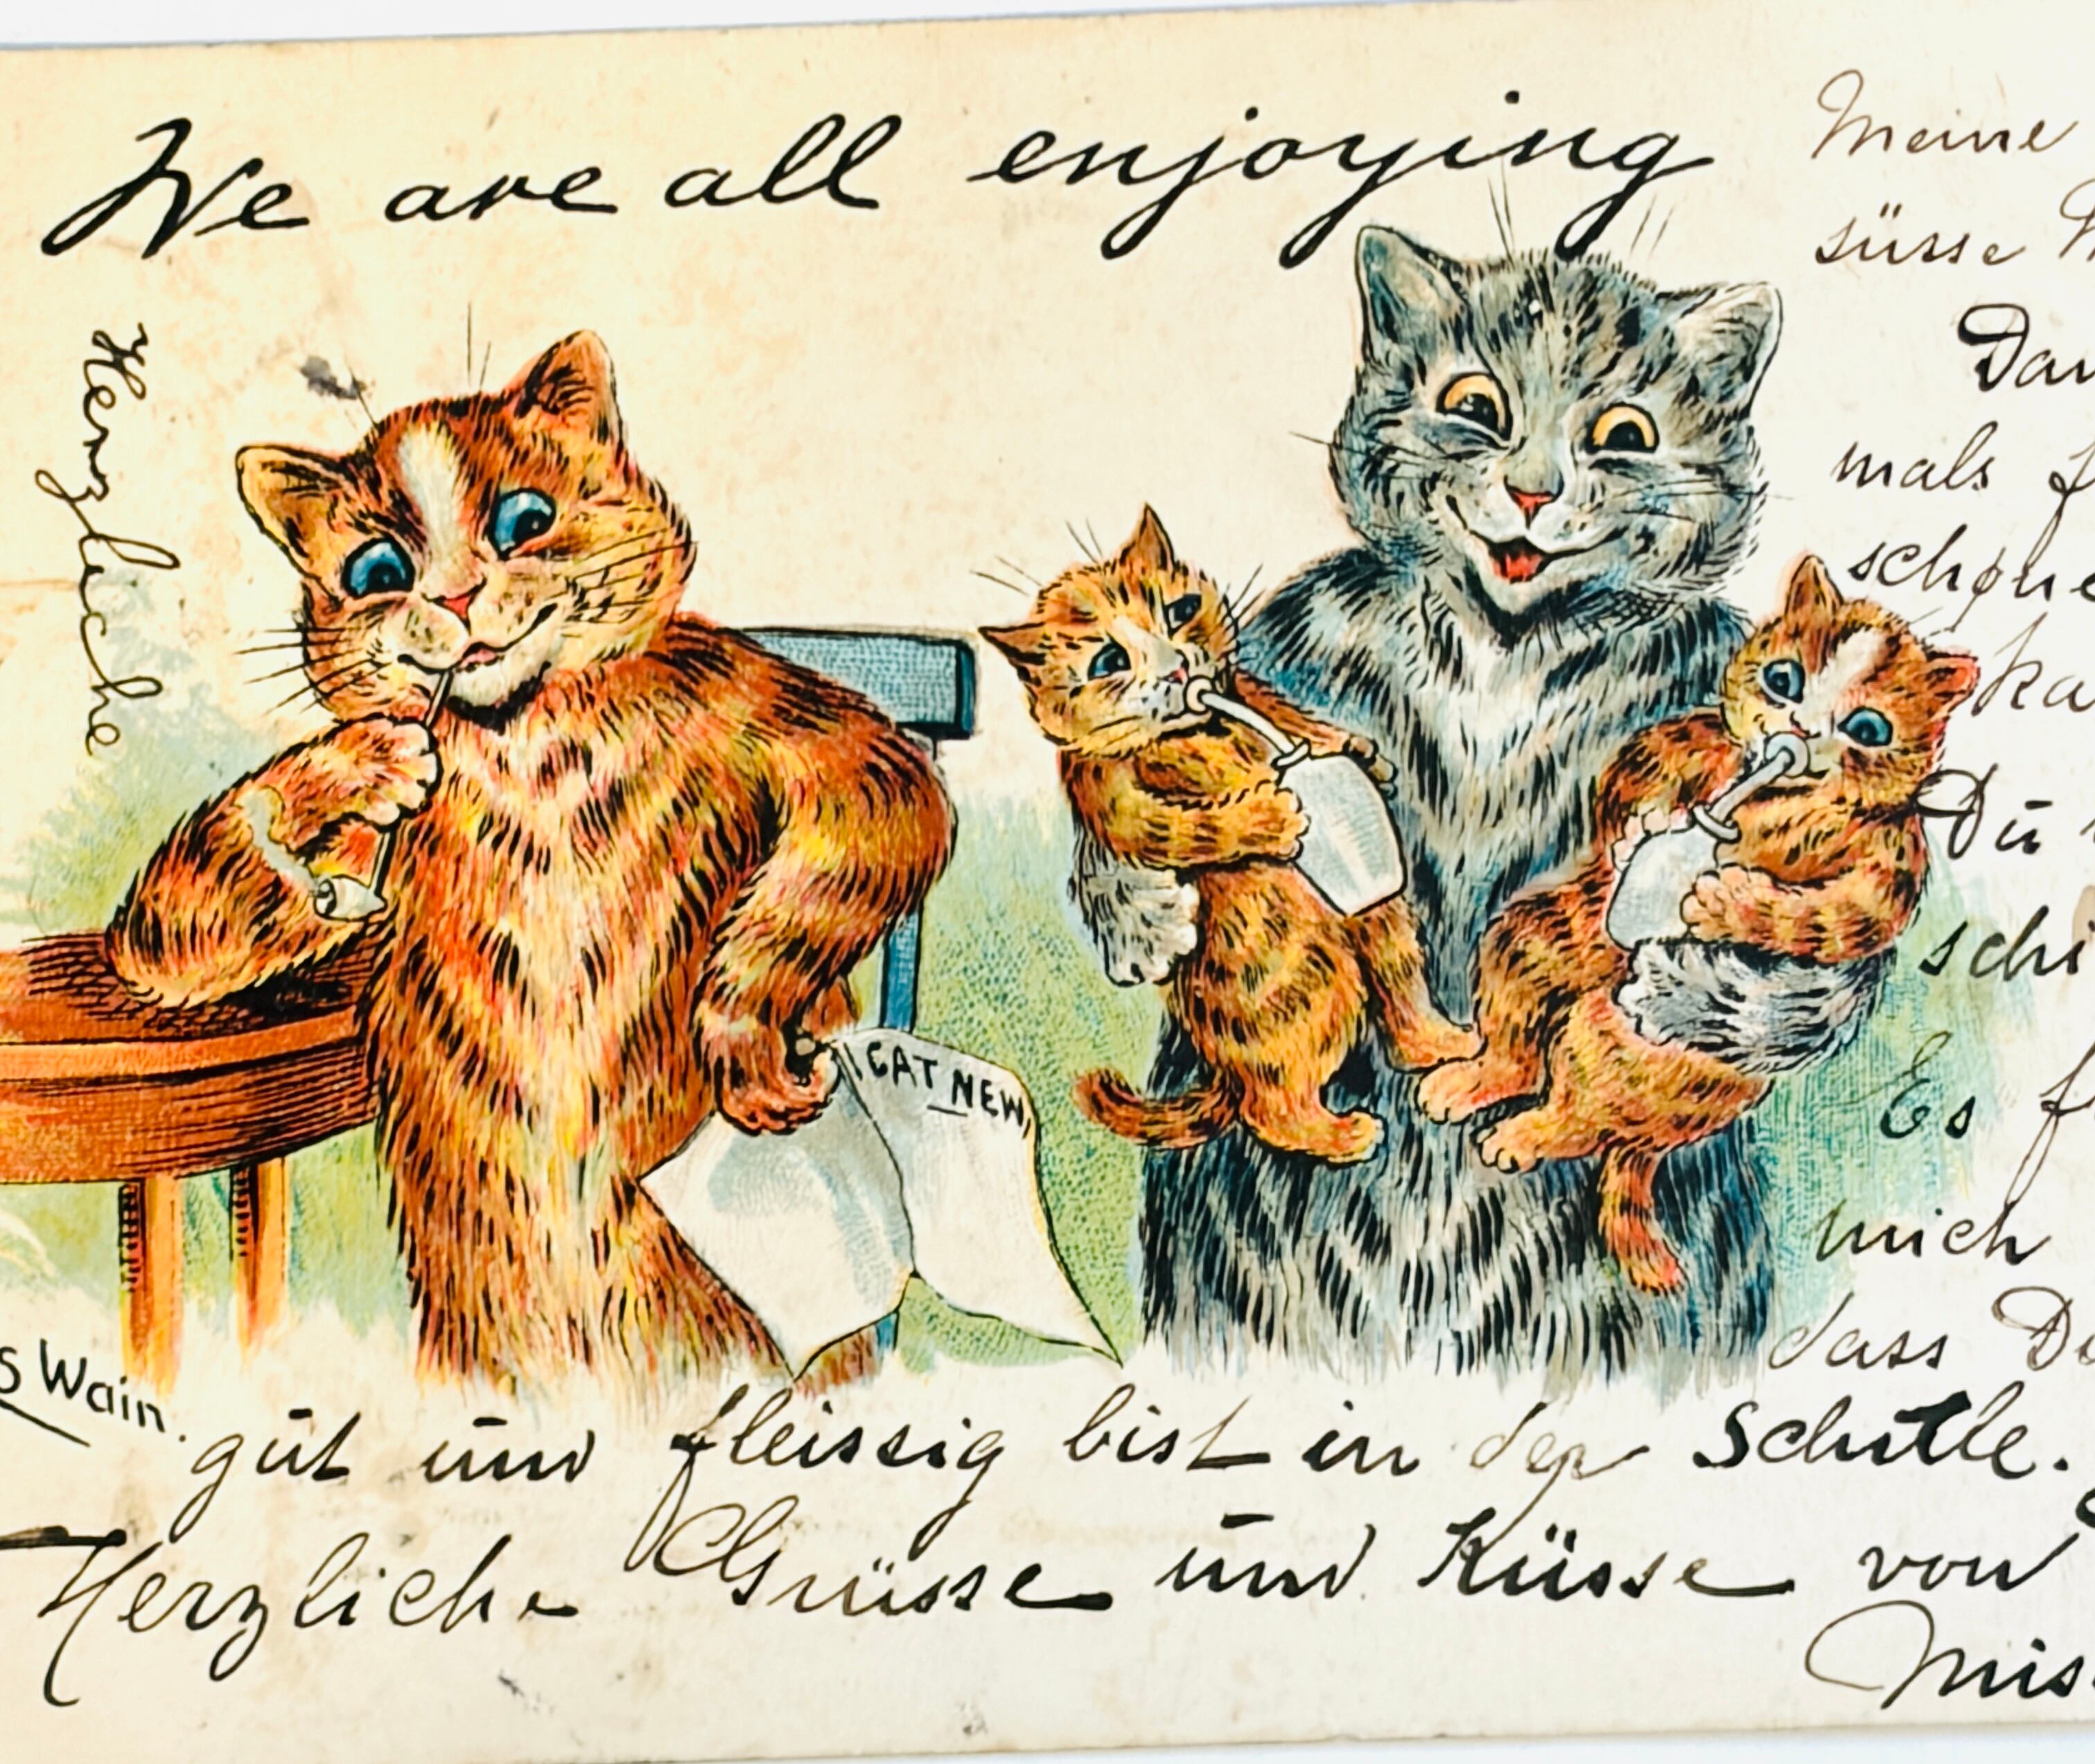 We are all enjoying
Herzliche
Meine
süsse
Dan
mals
schöne
ka
Du
schi
Es f
mich
dass Du
CAT NEW
s Wain.
gut und fleissig bist in der Schule.
Herzliche Grüsse und Küsse von
Mis